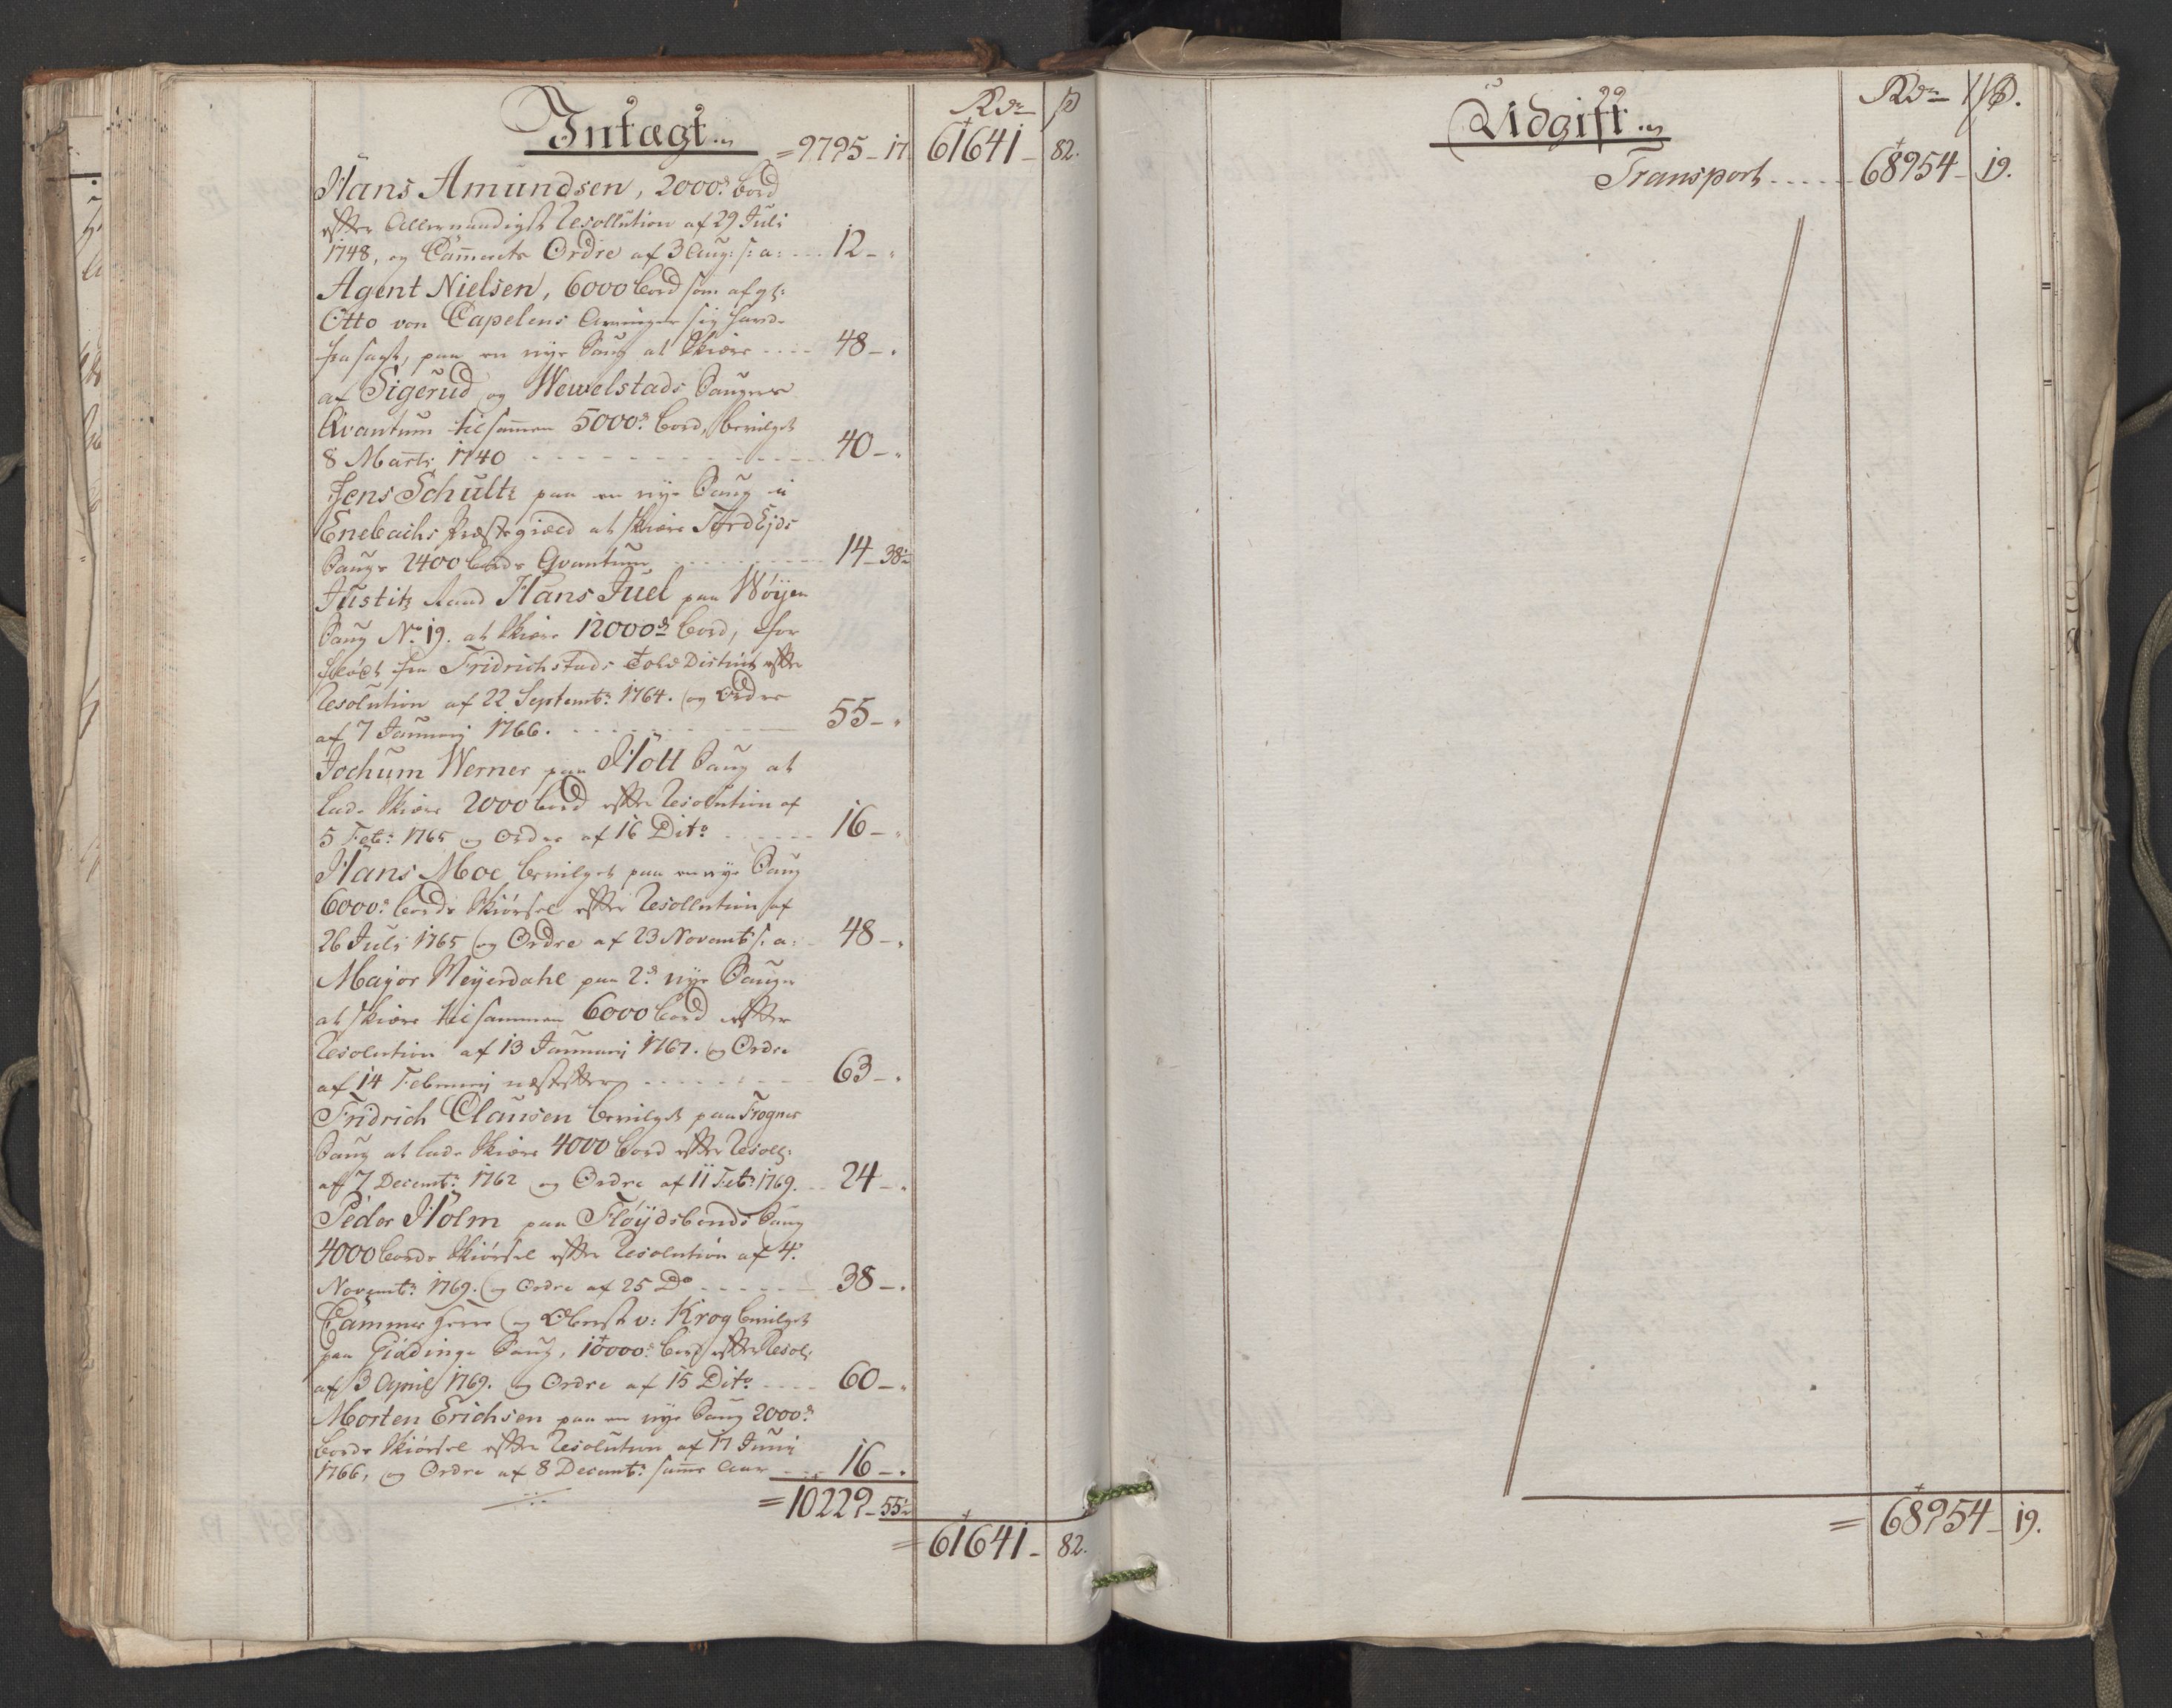 Indtægt.
Rdr ß
= 9795 - 17. 61641 - 82.
Hans Amundsen, 2000de bord
efter Allernaadigst Resollution af 29 Juli
1748, og Cammerets Ordre af 3 Aug: s: a: ... 12 - "
Agent Nielsen, 6000 bord som afgl:
Otto von Capelens Arvinger sig havde
fra sagt, paa en nye Saug at Skiære .... 48 - "
af Sigerud og Wewelstads Saugers
Qvantum tilsammen 5000de bord, bevilget
8 Marts 1740 - - - - 40 - "
Jens Schultz paa en nye Saug i
Enebachs Præstegield at skiære
Saugs 2400 bords Qvantum - - - - 14 - 38½
Justitz Raad Hans Juel paa Wøyen
Saug No 19. at Skiære 12000de bord, for
fløt fra Fridrichstads Told District efter
Resolution af 22 Septembr: 1764. og Ordre
af 7 Januarij 1766. - - - - 55 - "
Jochum Werner paa Holt Saug at
lade Skiære 2000 bord efter Resolution af
5 Febr: 1765 og Ordre af 16 Dito - - - - 16 - "
Hans Moe bevilget paa en nye Saug
6000de bords Skiørsel efter Resollution af
26 Juli 1765 og Ordre af 23 Novembr s: a: - 48 - "
Major Meyerdahl paa 2de nye Sauger
at skiære tilsammen 6000 bord efter
Resolution af 13 Januarij 1767. og Ordre
af 14 Februarij næstefter - - - - 63 - "
Fridrich Clausen bevilget paa Frogner
Saug at lade Skiære 4000 bord efter Resol:
af 7 Decembr: 1762 og Ordre af 11 Febr: 1769. - 24 - "
Peder Holm paa Fløydsbonds Saug
4000 bords Skiørsel efter Resolution af 4.
Novembr: 1769. og Ordre af 25 Do - - - - 38 - "
Cammer Herre og Oberst v: Krog bevilget
paa Saug, 10000de bord efter Resol:
af 3 April 1769. og Ordre af 15 Dito - - - 60 - "
Morten Erichsen paa en nye Saug 2000de
bords Skiørsel efter Resolution af 17 Junij
1766, og Ordre af 8 Decembr: samme Aar - - 16 - "
= 10229 - 55½
= 61641 - 82.
Udgift.
Rdr ß.
Transport ..... 68954 - 19.
= 68954 - 19.